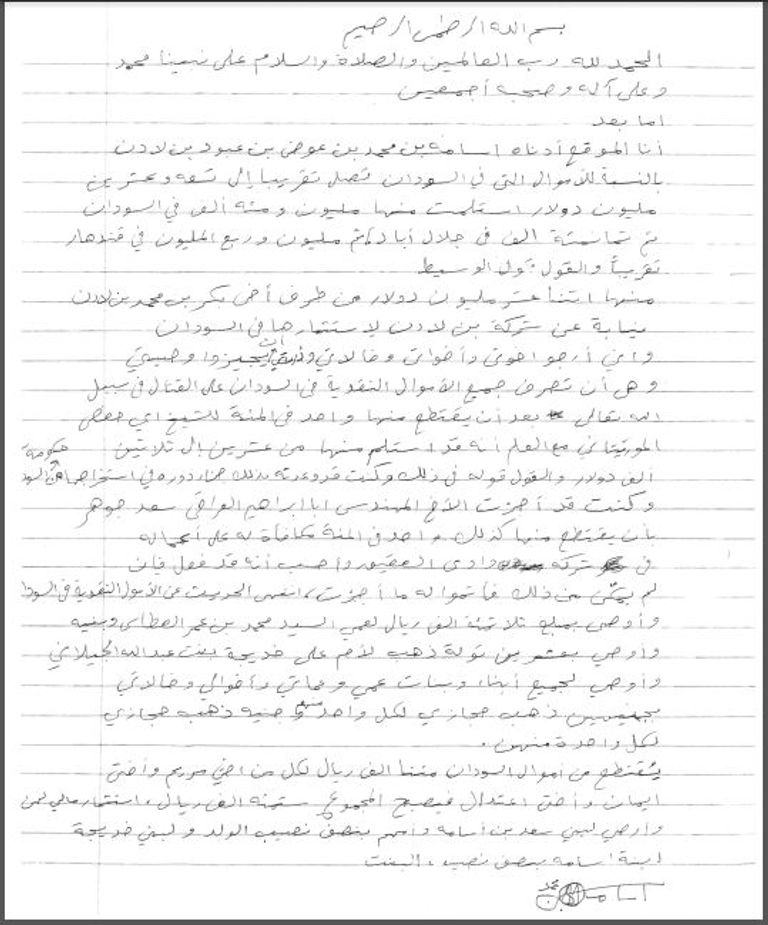 بسم الله الرحمن الرحيم
الحمد لله رب العالمين والصلاة والسلام على نبينا محمد
وعلى آله وصحبه أجمعين
اما بعد
أنا الموقع أدناه اسامه بن محمد بن عوض بن عبود بن لادن
بالنسبة للأموال التي في السودان تصل تقريبا إلى تسعه وعشرين
مليون دولار استلمت منها مليون ومئه ألف في السودان
ثم ثمانمئة الف في جلال أباد ثم مليون وربع المليون في قندهار
تقريباً والقول قول الوسيط
منها اثنا عشر مليون دولار من طرف أخي بكر بن محمد بن لادن
نيابة عن شركة بن لادن لاستثمارها في السودان
واني أرجو اخوتي وأخواتي وخالاتي أن يجيزوا وصيتي
وهي أن تصرف جميع الأموال النقدية في السودان على القتال في سبيل
الله تعالى بعد أن يقتطع منها واحد في المئة للشيخ ابي حفص
الموريتاني مع العلم أنه قد استلم منها من عشرين إلى ثلاثين
ألف دولار والقول قوله في ذلك وكنت قد وعدته بذلك جزاء دوره في استخراجها من حكومة السود
وكنت قد أجزت الأخ المهندس ابا ابراهيم العراقي سعد جوهر
بأن يقتطع منها كذلك واحد في المئة مكافأة له على أعماله
في شركه وادي العقيق وأحسب أنه قد فعل فإن
لم يتمكن من ذلك فأتموا له ما أجزت، انتهى الحديث عن الأموال النقدية في السودا
وأوصي بمبلغ ثلاثمئة الف ريال لعمي السيد محمد بن عمر العطاس وبنيه
وأوصي بعشرين تولة ذهب لأم علي خديجة بنت عبد الله الجيلاني
وأوصي لجميع أبناء وبنات عمي وعماتي وأخوالي وخالاتي
بجنيهين ذهب حجازي لكل واحد منهم و جنيه ذهب حجازي
لكل واحدة منهن .
يقتطع من أموال السودان مئتا الف ريال لكل من اختي مريم وأختي
ايمان وأختي اعتدال فيصبح المجموع ستمئه الف ريال،
وأوصي لبني سعد بن أسامه وأمهم بنصف نصيب الولد ولبني خديجة
ابنة اسامه بنصف نصيب البنت